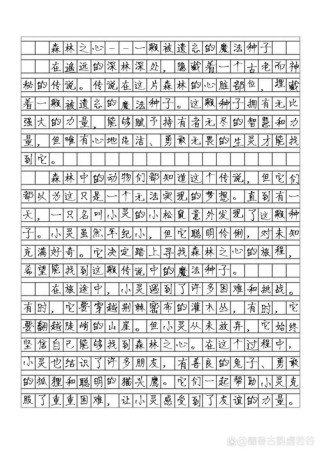 森林之心——一颗被遗忘的魔法种子
在遥远的深林深处，隐藏着一个古老而神
秘的传说。传说在这片森林的心脏部位，埋藏
着一颗被遗忘的魔法种子。这颗种子拥有无比
强大的力量，能够赋予持有者无尽的智慧和力
量，但唯有心地纯洁、勇敢无畏的生灵才能找
到它。
森林中的动物们都知道这个传说，但它们
都以为这只是一个无法实现的梦想。直到有一
天，一只名叫小灵的小松鼠意外发现了这颗种
子。小灵虽然年纪小，但它聪明伶俐，对未知
充满好奇。它决定踏上寻找森林之心的旅程，
希望能找到这颗传说中的魔法种子。
在旅途中，小灵遇到了许多困难和挑战。
有时，它要穿越荆棘密布的灌木丛，有时，它
要翻越陡峭的山崖。但小灵从未放弃，它始终
坚信自己能够找到森林之心。在这个过程中，
小灵也结识了许多朋友，有善良的兔子、勇敢
的狐狸和聪明的猫头鹰。它们一起帮助小灵克
服了重重困难，让小灵感受到了友谊的力量。